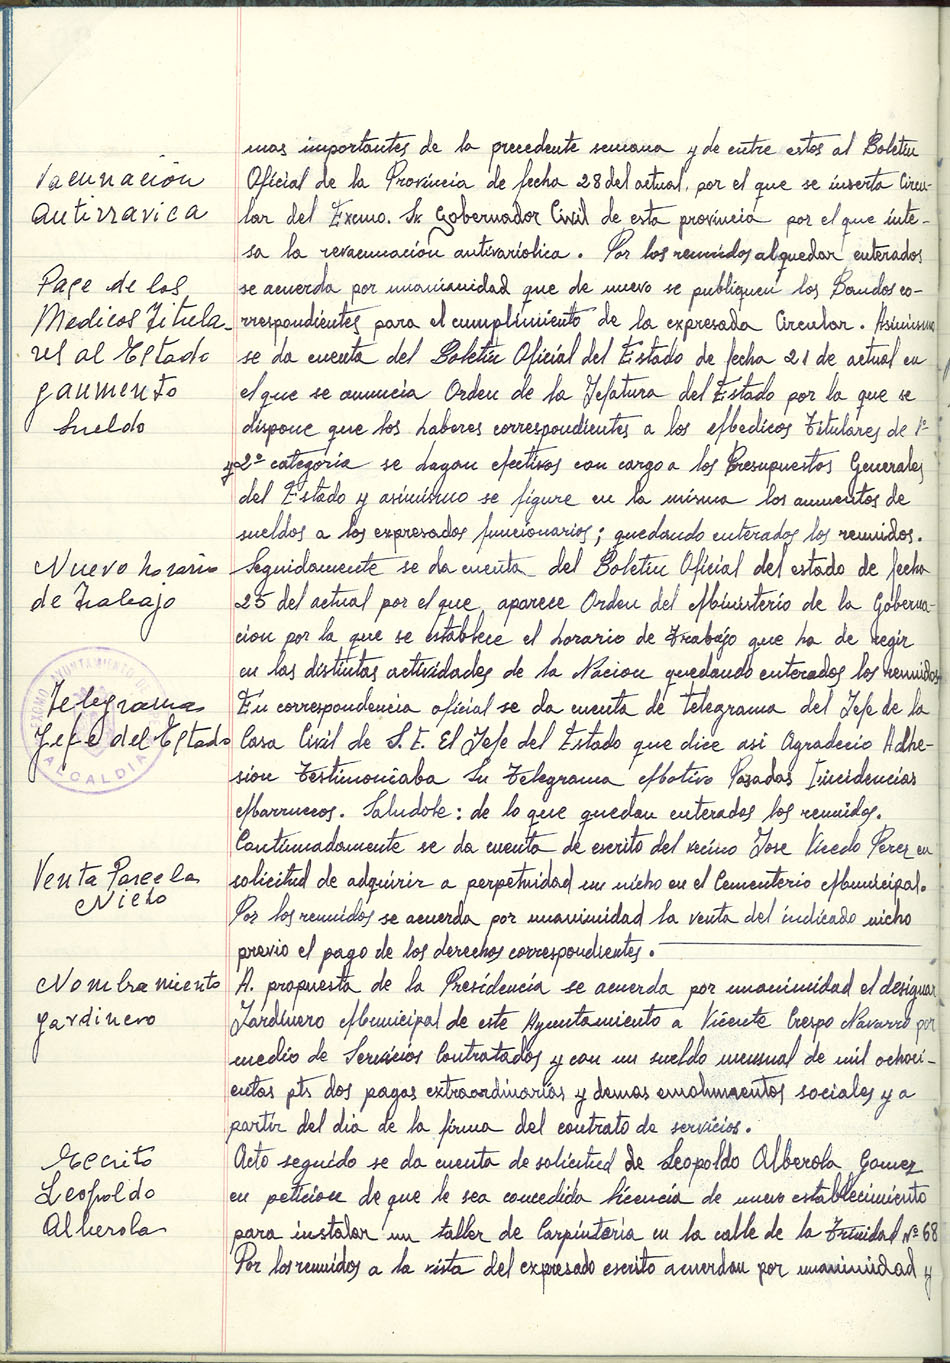 mas importantes de la precedente semana y de entre estos al Boletin
Vacunación
Oficial de la Provincia de fecha 28 del actual, por el que se inserta Circu-
antirravica
lar del Excmo. Sr Gobernador Civil de esta provincia por el que inte-
sa la revacunación antivariólica. Por los reunidos al quedar enterados
Page de los
se acuerda por unanimidad que de nuevo se publiquen los Bandos co-
Medicos Titula-
rrespondientes para el cumplimiento de la expresada Circular. Asimismo
res al Estado
se da cuenta del Boletin Oficial del Estado de fecha 21 de actual en
y aumento
el que se anuncia Orden de la Jefatura del Estado por la que se
Sueldo
dispone que los haberes correspondientes a los Medicos Titulares de 1ª
y 2ª categoria se hagan efectivos con cargo a los Presupuestos Generales
del Estado y asimismo se figure en la misma los aumentos de
sueldos a los expresados funcionarios; quedando enterados los reunidos.
Nuevo horario
Seguidamente se da cuenta del Boletin Oficial del estado de fecha
de Trabajo
25 del actual por el que aparece Orden del Ministerio de la Goberna-
cion por la que se establece el horario de Trabajo que ha de regir
en las distintas actividades de la Nacion quedando enterados los reunidos
Telegrama
En correspondencia oficial se da cuenta de telegrama del Jefe de la
Jefe del Estado
Casa Civil de S.E. El Jefe del Estado que dice asi Agradecio Adhe-
sion Testimoniaba Su Telegrama Motivo Pasadas Incidencias
Marruecos. Saludole: de lo que quedan enterados los reunidos.
Continuadamente se da cuenta de escrito del vecino Jose Vicedo Perez en
Venta Parcela
solicitud de adquirir a perpetuidad un nicho en el Cementerio Municipal.
Nicho
Por los reunidos se acuerda por unanimidad la venta del indicado nicho
previo el pago de los derechos correspondientes.
Nombramiento
A. propuesta de la Presidencia se acuerda por unanimidad el designar
Jardinero
Jardinero Municipal de este Ayuntamiento a Vicente Crespo Navarro por
medio de Servicios Contratados y con un sueldo mensual de mil ochoci-
entas pts dos pagas extraordinarias y demas emolumentos sociales y a
partir del dia de la firma del contrato de servicios.
Escrito
Acto seguido se da cuenta de solicitud de Leopoldo Alberola Gomez
Leopoldo
en peticion de que le sea concedida licencia de nuevo establecimiento
Alberola
para instalar un taller de Carpinteria en la calle de la Trinidad Nº 68
Por los reunidos a la vista del expresado escrito acuerdan por unanimidad y
EXCMO. AYUNTAMIENTO DE
ALCALDIA